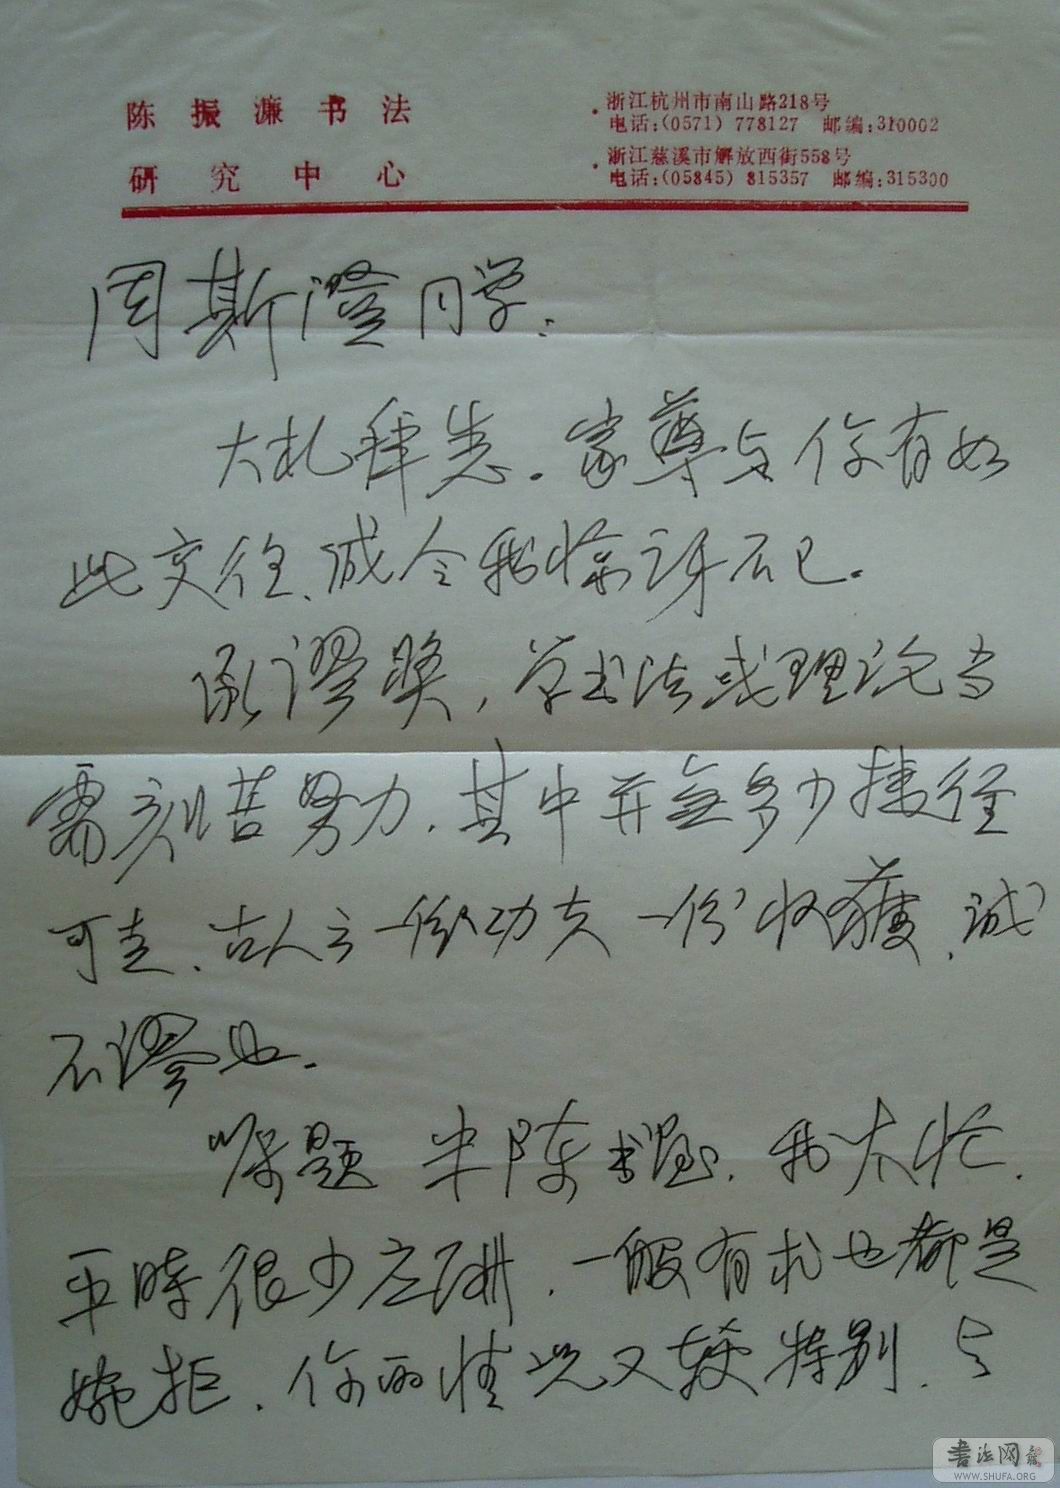 陈振濂书法
研究中心
·浙江杭州市南山路218号
电话:(0571) 778127 邮编:310002
·浙江慈溪市解放西街558号
电话:(05845) 815357 邮编:315300
周斯澄同学:
大札拜悉。家尊与你有如
此交往、诚令我惊讶不已。
承谬奖,学书法或理论当
需刻苦努力.其中并無多少捷径
可走、古人云一份功夫一份收獲、诚
不谬也.
嘱题 半陈书屋.我太忙.
平時很少应酬.一般有求也都是
婉拒.你的情况又较特别.与
書法网
WWW.SHUFA.ORG